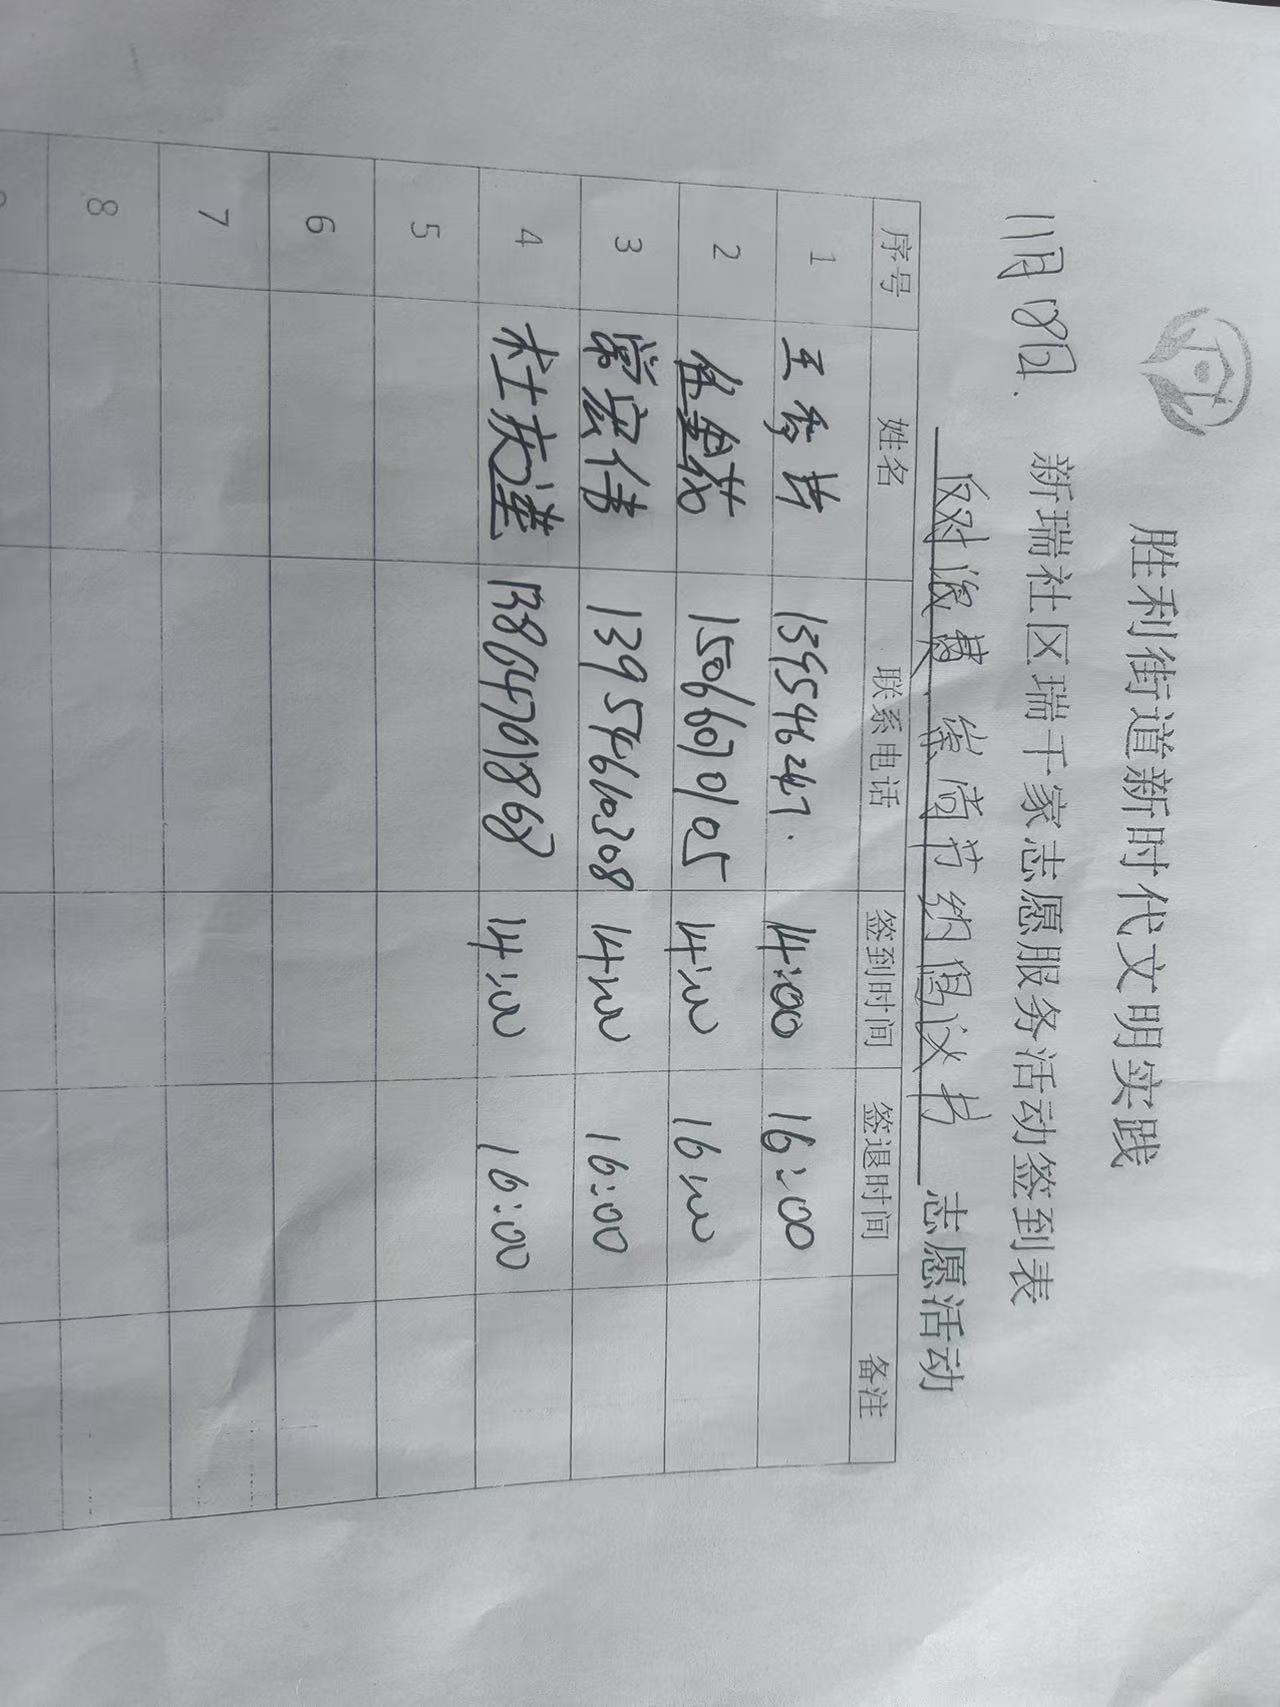 胜利街道新时代文明实践
新瑞社区瑞千家志愿服务活动签到表
11月8日.
反对浪费 崇尚节约倡议书 志愿活动
序号 姓名 联系电话 签到时间 签退时间 备注
1 王秀 1395462417. 14:00 16:00
2 任金花 15066070105 14:00 16:00
3 常宏伟 13954610308 14:00 16:00
4 14:00 16:00
5
6
7
8